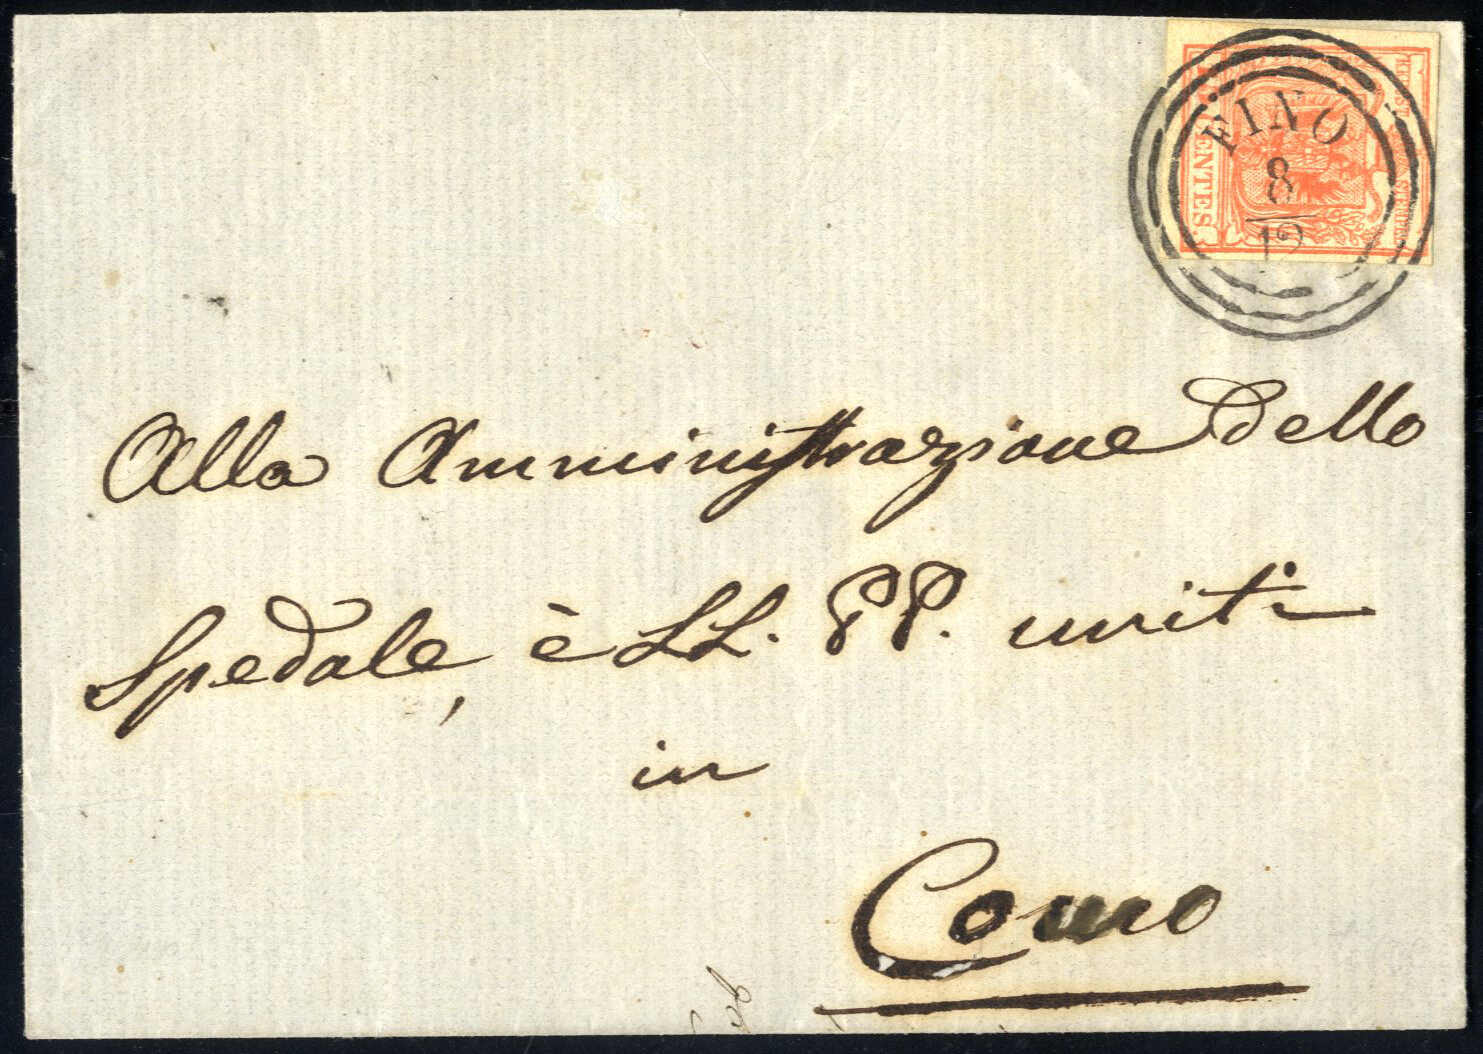 FINO
8
12
CENTES
Alla Amministrazione dello
Spedale, è LL. PP. uniti
in
Como